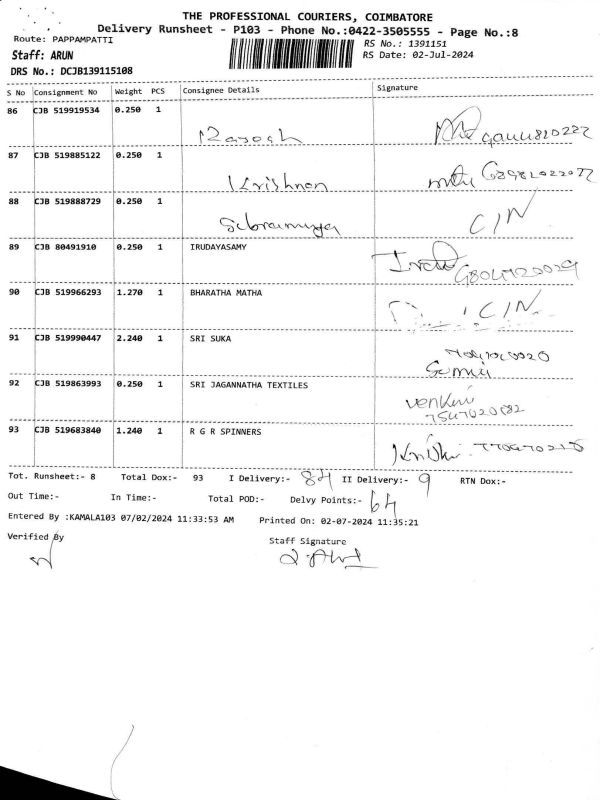 THE PROFESSIONAL COURIERS, COIMBATORE
Delivery Runsheet - P103 - Phone No.:0422-3505555 - Page No.:8
Route: PAPPAMPATTI
RS No.: 1391151
Staff: ARUN
RS Date: 02-Jul-2024
DRS No.: DCJB139115108
S No Consignment No Weight PCS Consignee Details Signature
86 CJB 519919534 0.250 1
87 CJB 519885122 0.250 1
Krishnan
88 CJB 519888729 0.250 1
C/N
89 CJB 80491910 0.250 1 IRUDAYASAMY
90 CJB 519966293 1.270 1 BHARATHA MATHA
C/N
91 CJB 519990447 2.240 1 SRI SUKA
92 CJB 519863993 0.250 1 SRI JAGANNATHA TEXTILES
93 CJB 519683840 1.240 1 R G R SPINNERS
Tot. Runsheet:- 8 Total Dox:- 93 I Delivery:- 84 II Delivery:- 9 RTN Dox:-
Out Time:- In Time:- Total POD:- Delvy Points:- 64
Entered By :KAMALA103 07/02/2024 11:33:53 AM Printed On: 02-07-2024 11:35:21
Verified By Staff Signature